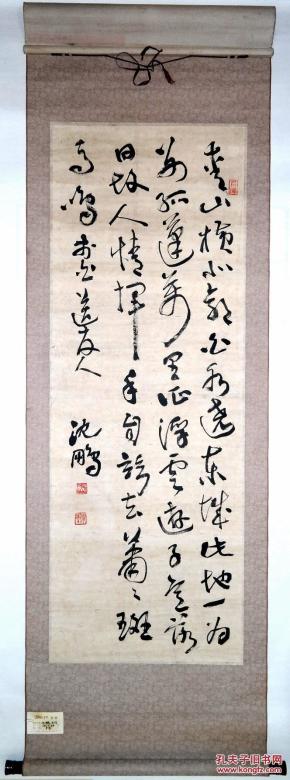 青山横北郭白水遶东城此地一为
别孤蓬萬里征浮雲遊子意落
日故人情揮手自兹去蕭〻斑
马鳴李白送友人
沈鹏
孔夫子旧书网